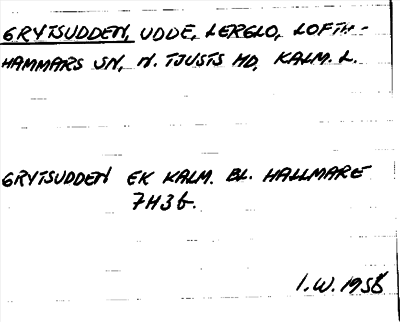 GRYTSUDDEN, UDDE, LERGLO, LOFTH-
HAMMARS SN, N. TJUSTS HD, KALM. L.
GRYTSUDDEN EK KALM. BL. HALLMARE
7H3b.
I.W. 1958